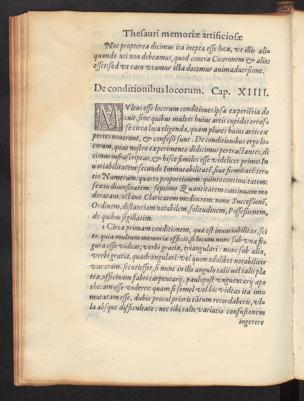 Thesauri memoriæ artificiosæ
Nec propterea dicimus ita inepta esse loca, ve illis aliquando uti non debeamus, quod contra Ciceronem & alios
esset: sed ve raro utamur ista docimus animaduersione.
De conditionibus locorum. Cap. XIIII.
MVltas esse locorum conditiones ipsa experiẽtia docuit, sine quibus multis huius artis cupidis errasse circa loca eligenda, quam plures huius artis experti
nouerunt, & confessi sunt. De conditionibus ergo locorum, quas nostro experimento didicimus pertractantes, dicimus infrascriptas, & hisce similes esse videlicet primo: Inuariabilitatem secundo Immutabilitatẽ,
Numerum: quarto proportionem: quinto continuitatem:
sexto diuersitatem: septimo Quantitatem
octauo, Claritatem mediocrem: nono Successionẽ,
Ordinem, distantiam notabilem, solitudinem, Possessionem,
de quibus sigillatim.
1 Circa primam conditionem, quæ est inuariabilitas
quia multum memoriæ officit, si locum nunc sub vna
gura esse videas, verbi gratia, triangulari: nunc sub alia,
verbi gratia, quadrangulari: vel quom odolibet notabiliter
variatum. sic etiam esset, si nunc in illo angulo talis vel talis
officinam fabri carpentarij, paulopost vnguentarij
thecam esse videres: quam si semel vel bis videas ita immutatam esse, dubio procul prioris tãtum recordaberis,
la absque difficultate: nec tibi talis variatio confusionem
ingerere